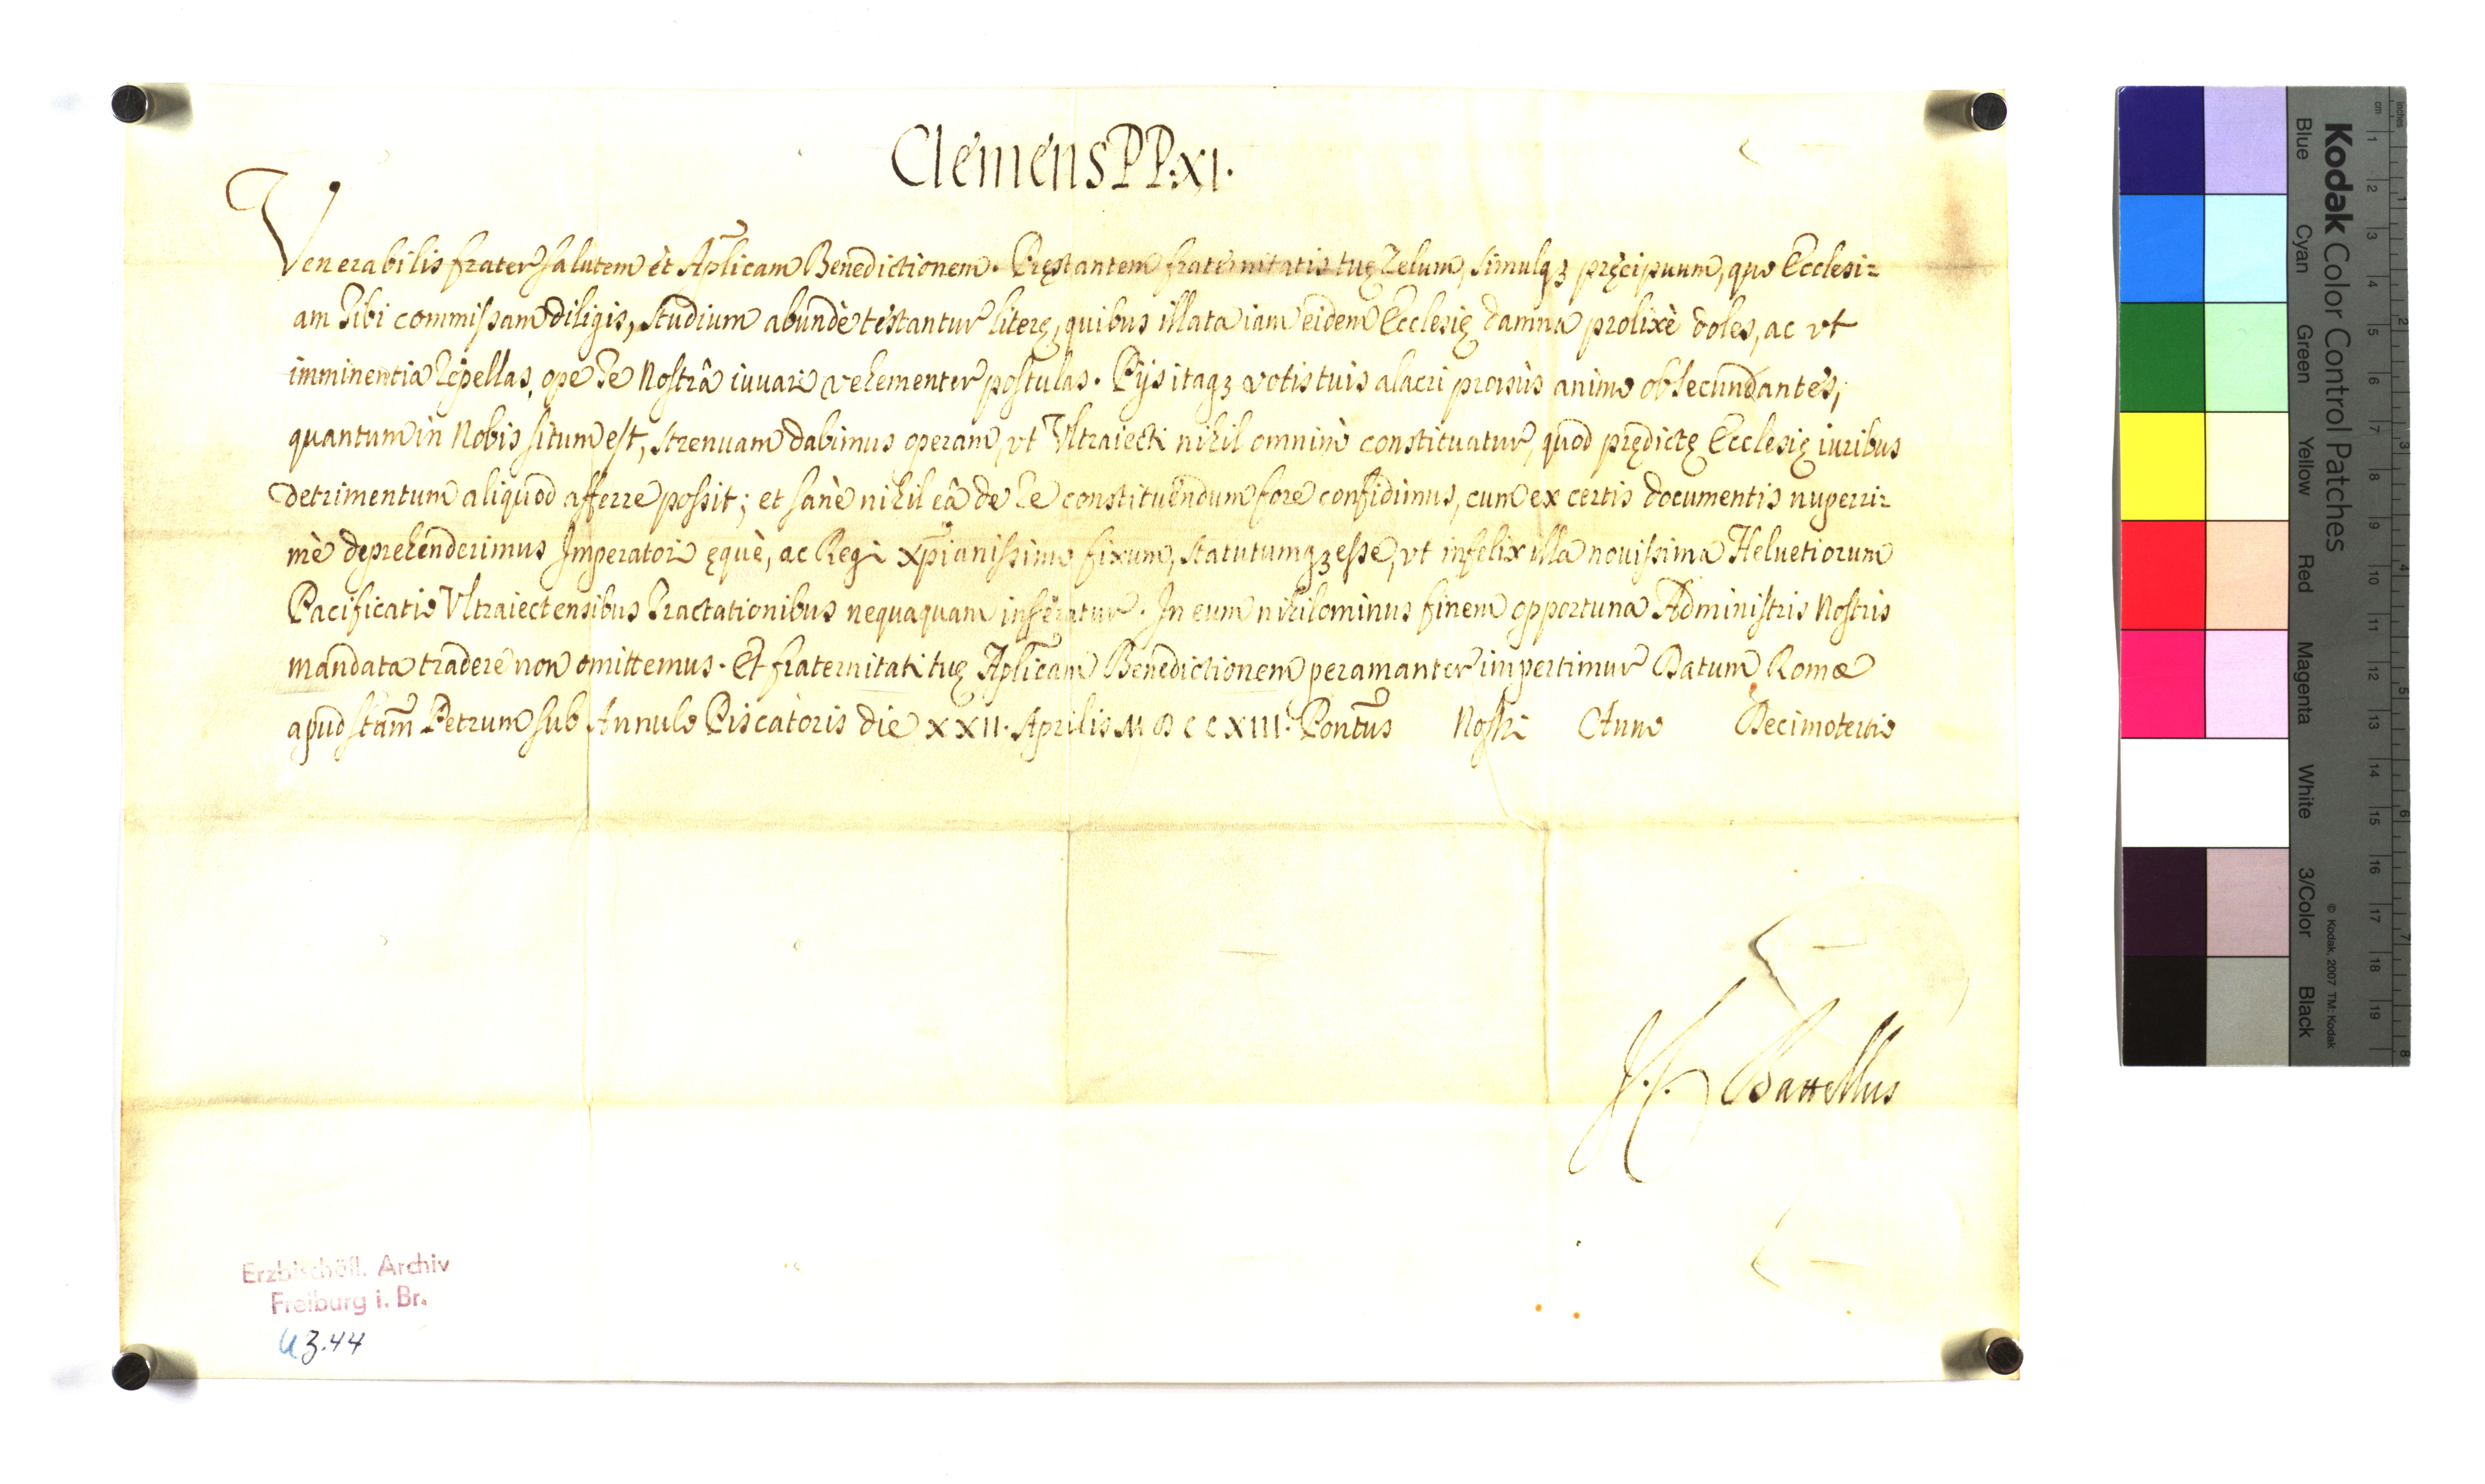 Clemens PP. XI.
Venerabilis frater salutem et Ap̃licam Benedictionem. Pręstantem fraternitatis tuę zelum, simulq₃ pręcipuum, quo Ecclesi=
am tibi commissam diligis, studium abundè testantur literę, quibus illata iam eidem Ecclesię damna prolixè doles, ac vt
imminentia repellas, ope te Nostrâ iuuari vehementer postulas. Pijs itaq₃ votis tuis alacri prorsùs animo obsecundantes,
quantum in Nobis situm est, strenuam dabimus operam, vt Vltraiecti nihil omninò constituatur, quod prędictę Ecclesię iuribus
detrimentum aliquod afferre possit; et sanè nihil eâ de re constituendum fore confidimus, cum ex certis documentis nuperri=
mè deprehenderimus Imperatori ęquè, ac Regi Xp̃ianissimo fixum, statutumq₃ esse, vt infelix illa nouissima Heluetiorum
Pacificatio Vltraiectensibus Tractationibus nequaquam inferatur. In eum nihilominus finem opportuna Administris Nostris
mandata tradere non omittemus. Et fraternitati tuę Ap̃licam Benedictionem peramanter impertimur Datum Romæ
apud S̃tam Petrum sub Annulo Piscatoris die XXII. Aprilis MDCCXIII. Pont̃us Nostri Anno Decimotertio
Battellus
Erzbischöfl. Archiv
Freiburg i. Br.
U 3.44
Kodak Color Control Patches
Blue Cyan Green Yellow Red Magenta White 3/Color Black
© Kodak, 2007 TM: Kodak
inches 1 2 3 4 5 6 7 8
cm 1 2 3 4 5 6 7 8 9 10 11 12 13 14 15 16 17 18 19